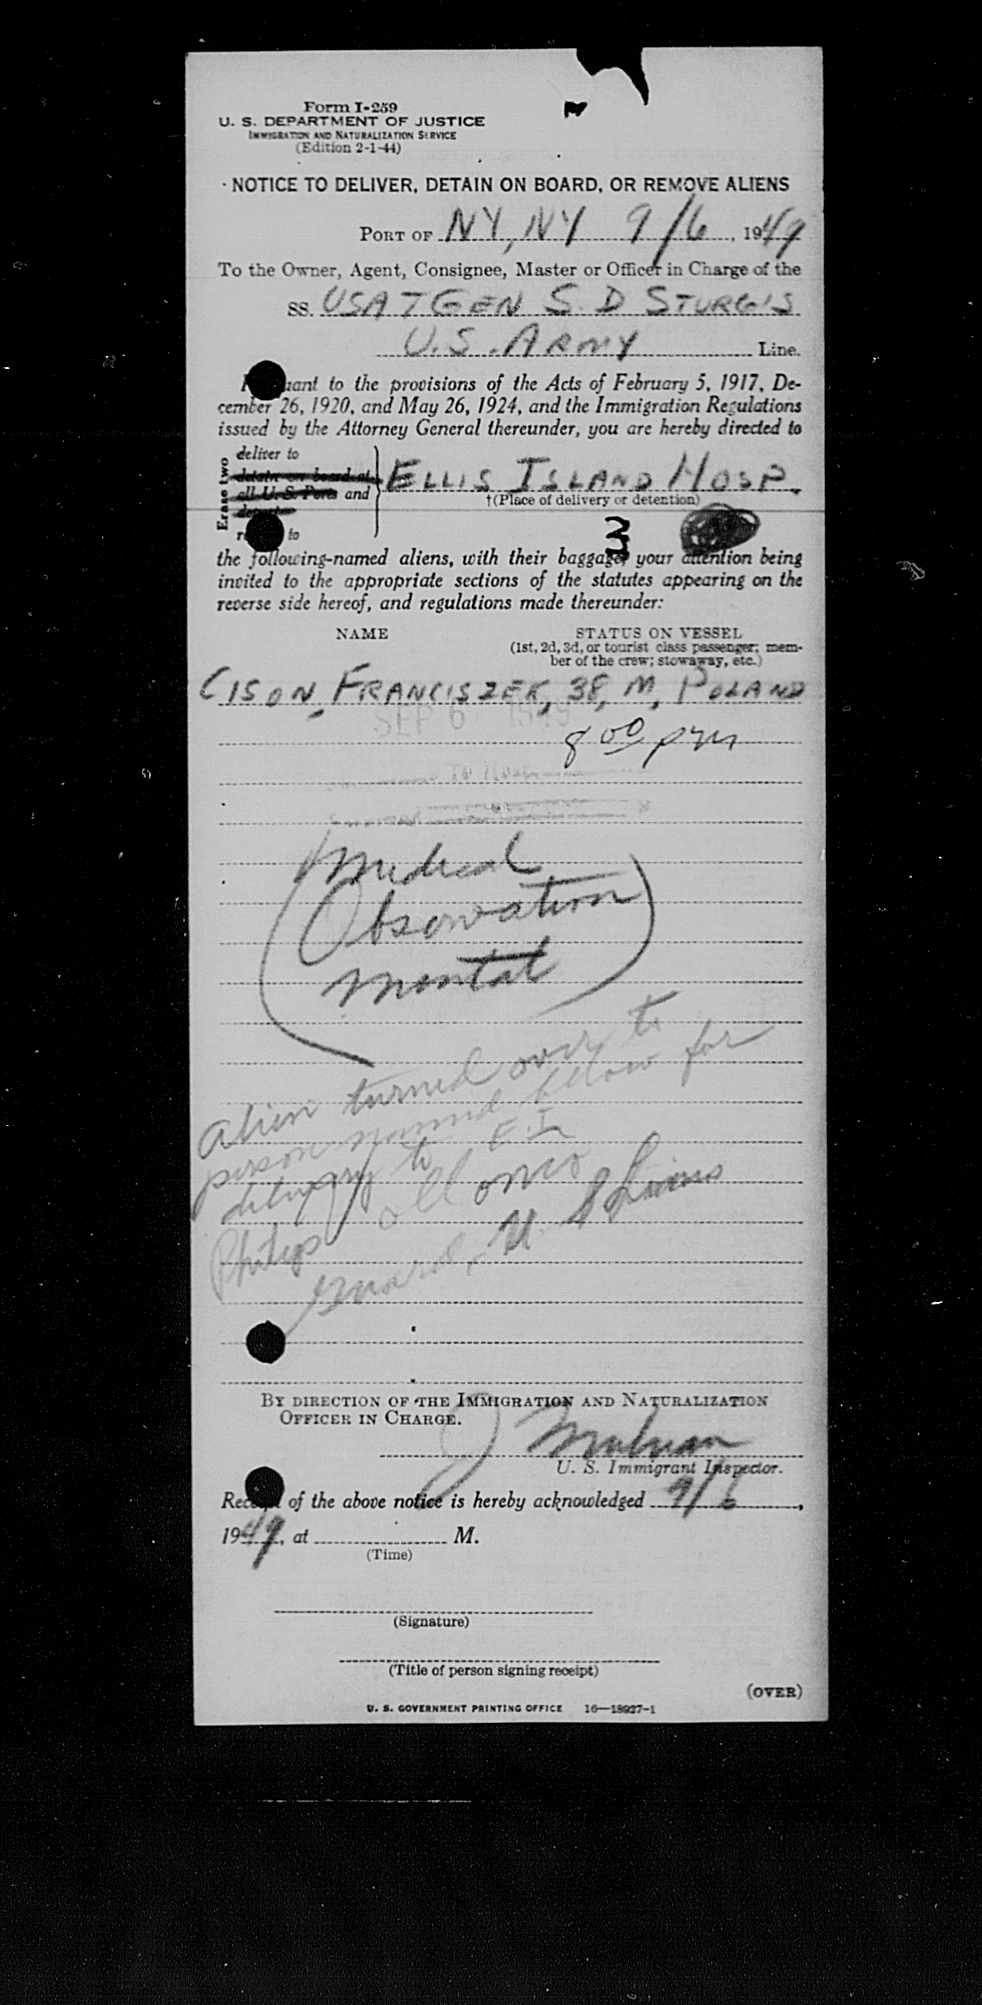 Form I-259
U. S. DEPARTMENT OF JUSTICE
IMMIGRATION AND NATURALIZATION SERVICE
(Edition 2-1-44)
NOTICE TO DELIVER, DETAIN ON BOARD, OR REMOVE ALIENS
PORT OF NY, NY 9/6, 1949
To the Owner, Agent, Consignee, Master or Officer in Charge of the
SS. USAT GEN S. D STURGIS
U.S. ARMY Line.
to the provisions of the Acts of February 5, 1917, De-
cember 26, 1920, and May 26, 1924, and the Immigration Regulations
issued by the Attorney General thereunder, you are hereby directed to
Erase two
deliver to
detain on board at
all U. S. Ports and
to
ELLIS ISLAND HOSP.
†(Place of delivery or detention)
3
the following-named aliens, with their baggage, your attention being
invited to the appropriate sections of the statutes appearing on the
reverse side hereof, and regulations made thereunder:
NAME STATUS ON VESSEL
(1st, 2d, 3d, or tourist class passenger; mem-
ber of the crew; stowaway, etc.)
CISON, FRANCISZEK, 38, M, POLAND
SEP 6 1949
8 00 pm
(Medical
Observation
mental)
alien turned over to
person named below for
delivery to E. I.
Philip
Guard, U. S. Lines
BY DIRECTION OF THE IMMIGRATION AND NATURALIZATION
OFFICER IN CHARGE.
U. S. Immigrant Inspector.
Receipt of the above notice is hereby acknowledged 9/6,
1949, at M.
(Time)
(Signature)
(Title of person signing receipt)
(OVER)
U. S. GOVERNMENT PRINTING OFFICE 16—18927-1